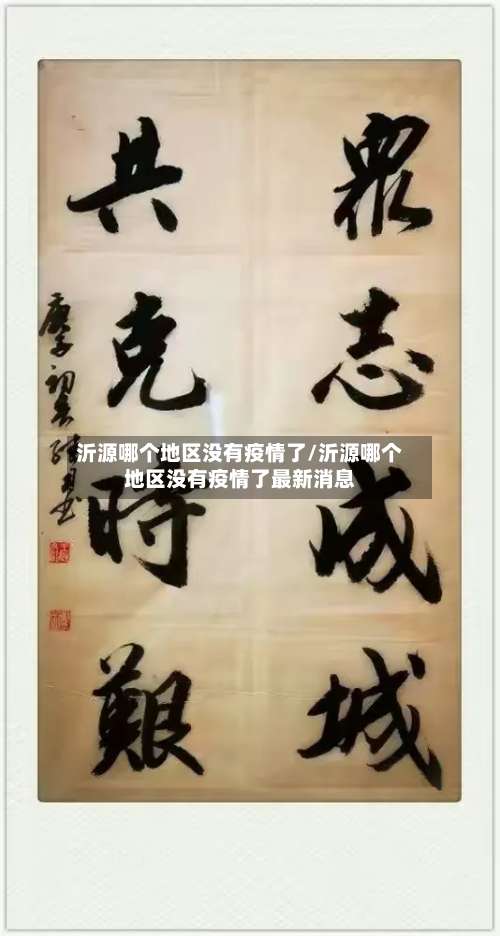 眾志成城
共克時艱
庚子初春
沂源哪个地区没有疫情了/沂源哪个
地区没有疫情了最新消息